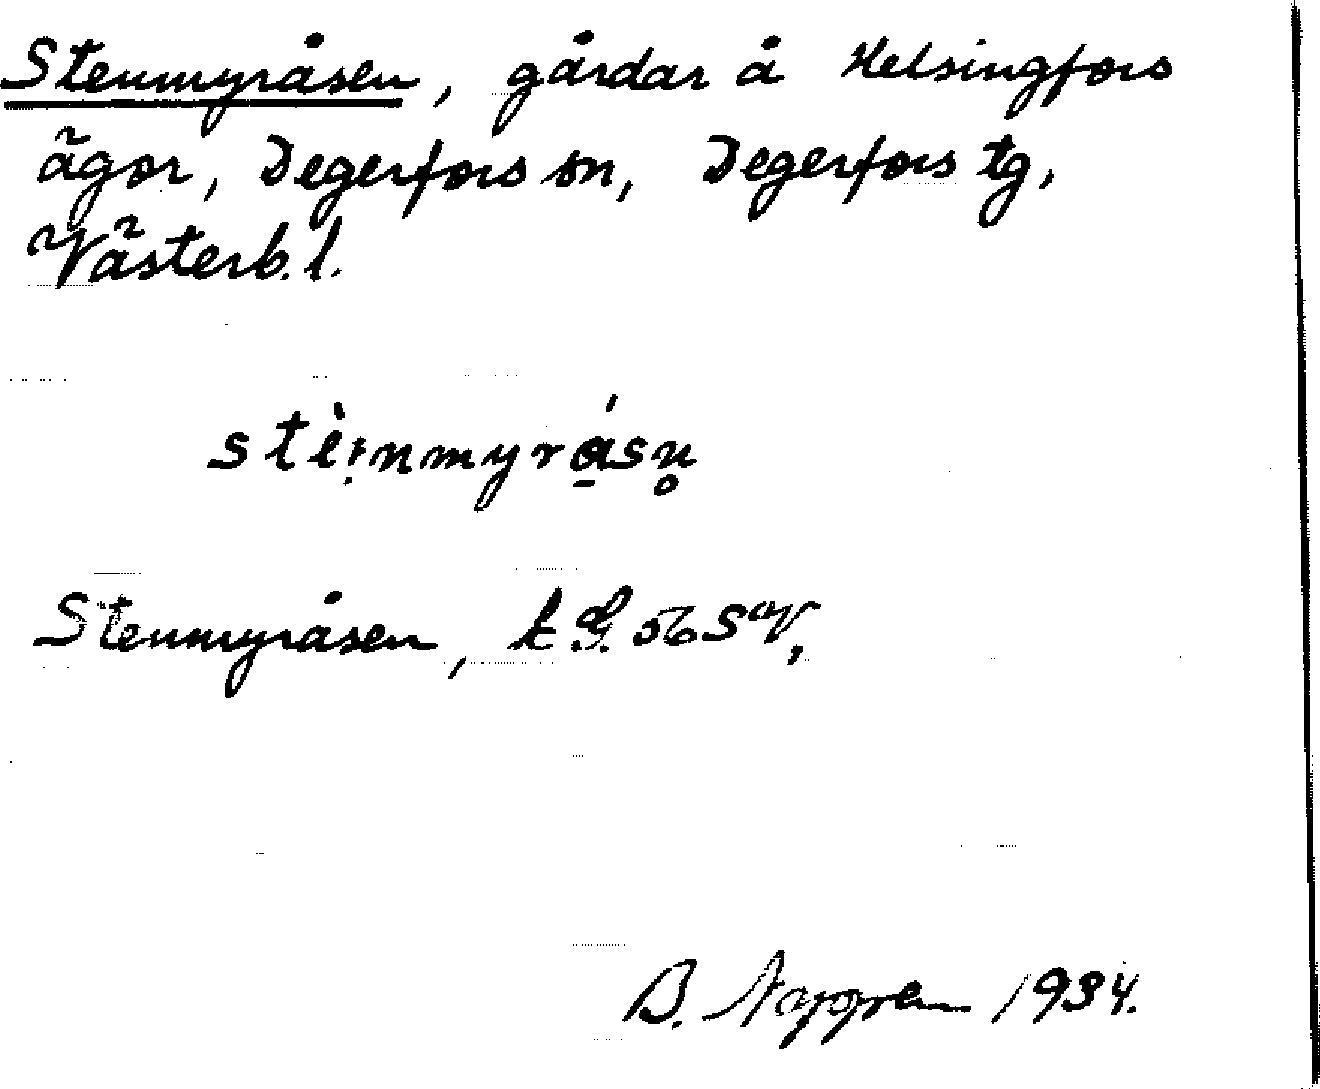 Stenmyråsen, gårdar å Helsingfors
ägor, Degerfors sn, Degerfors tg,
Västerb. l.
stèi̩nmyrá̱sn̥
Stenmyråsen, k G. 56 SV,
B. 1934.